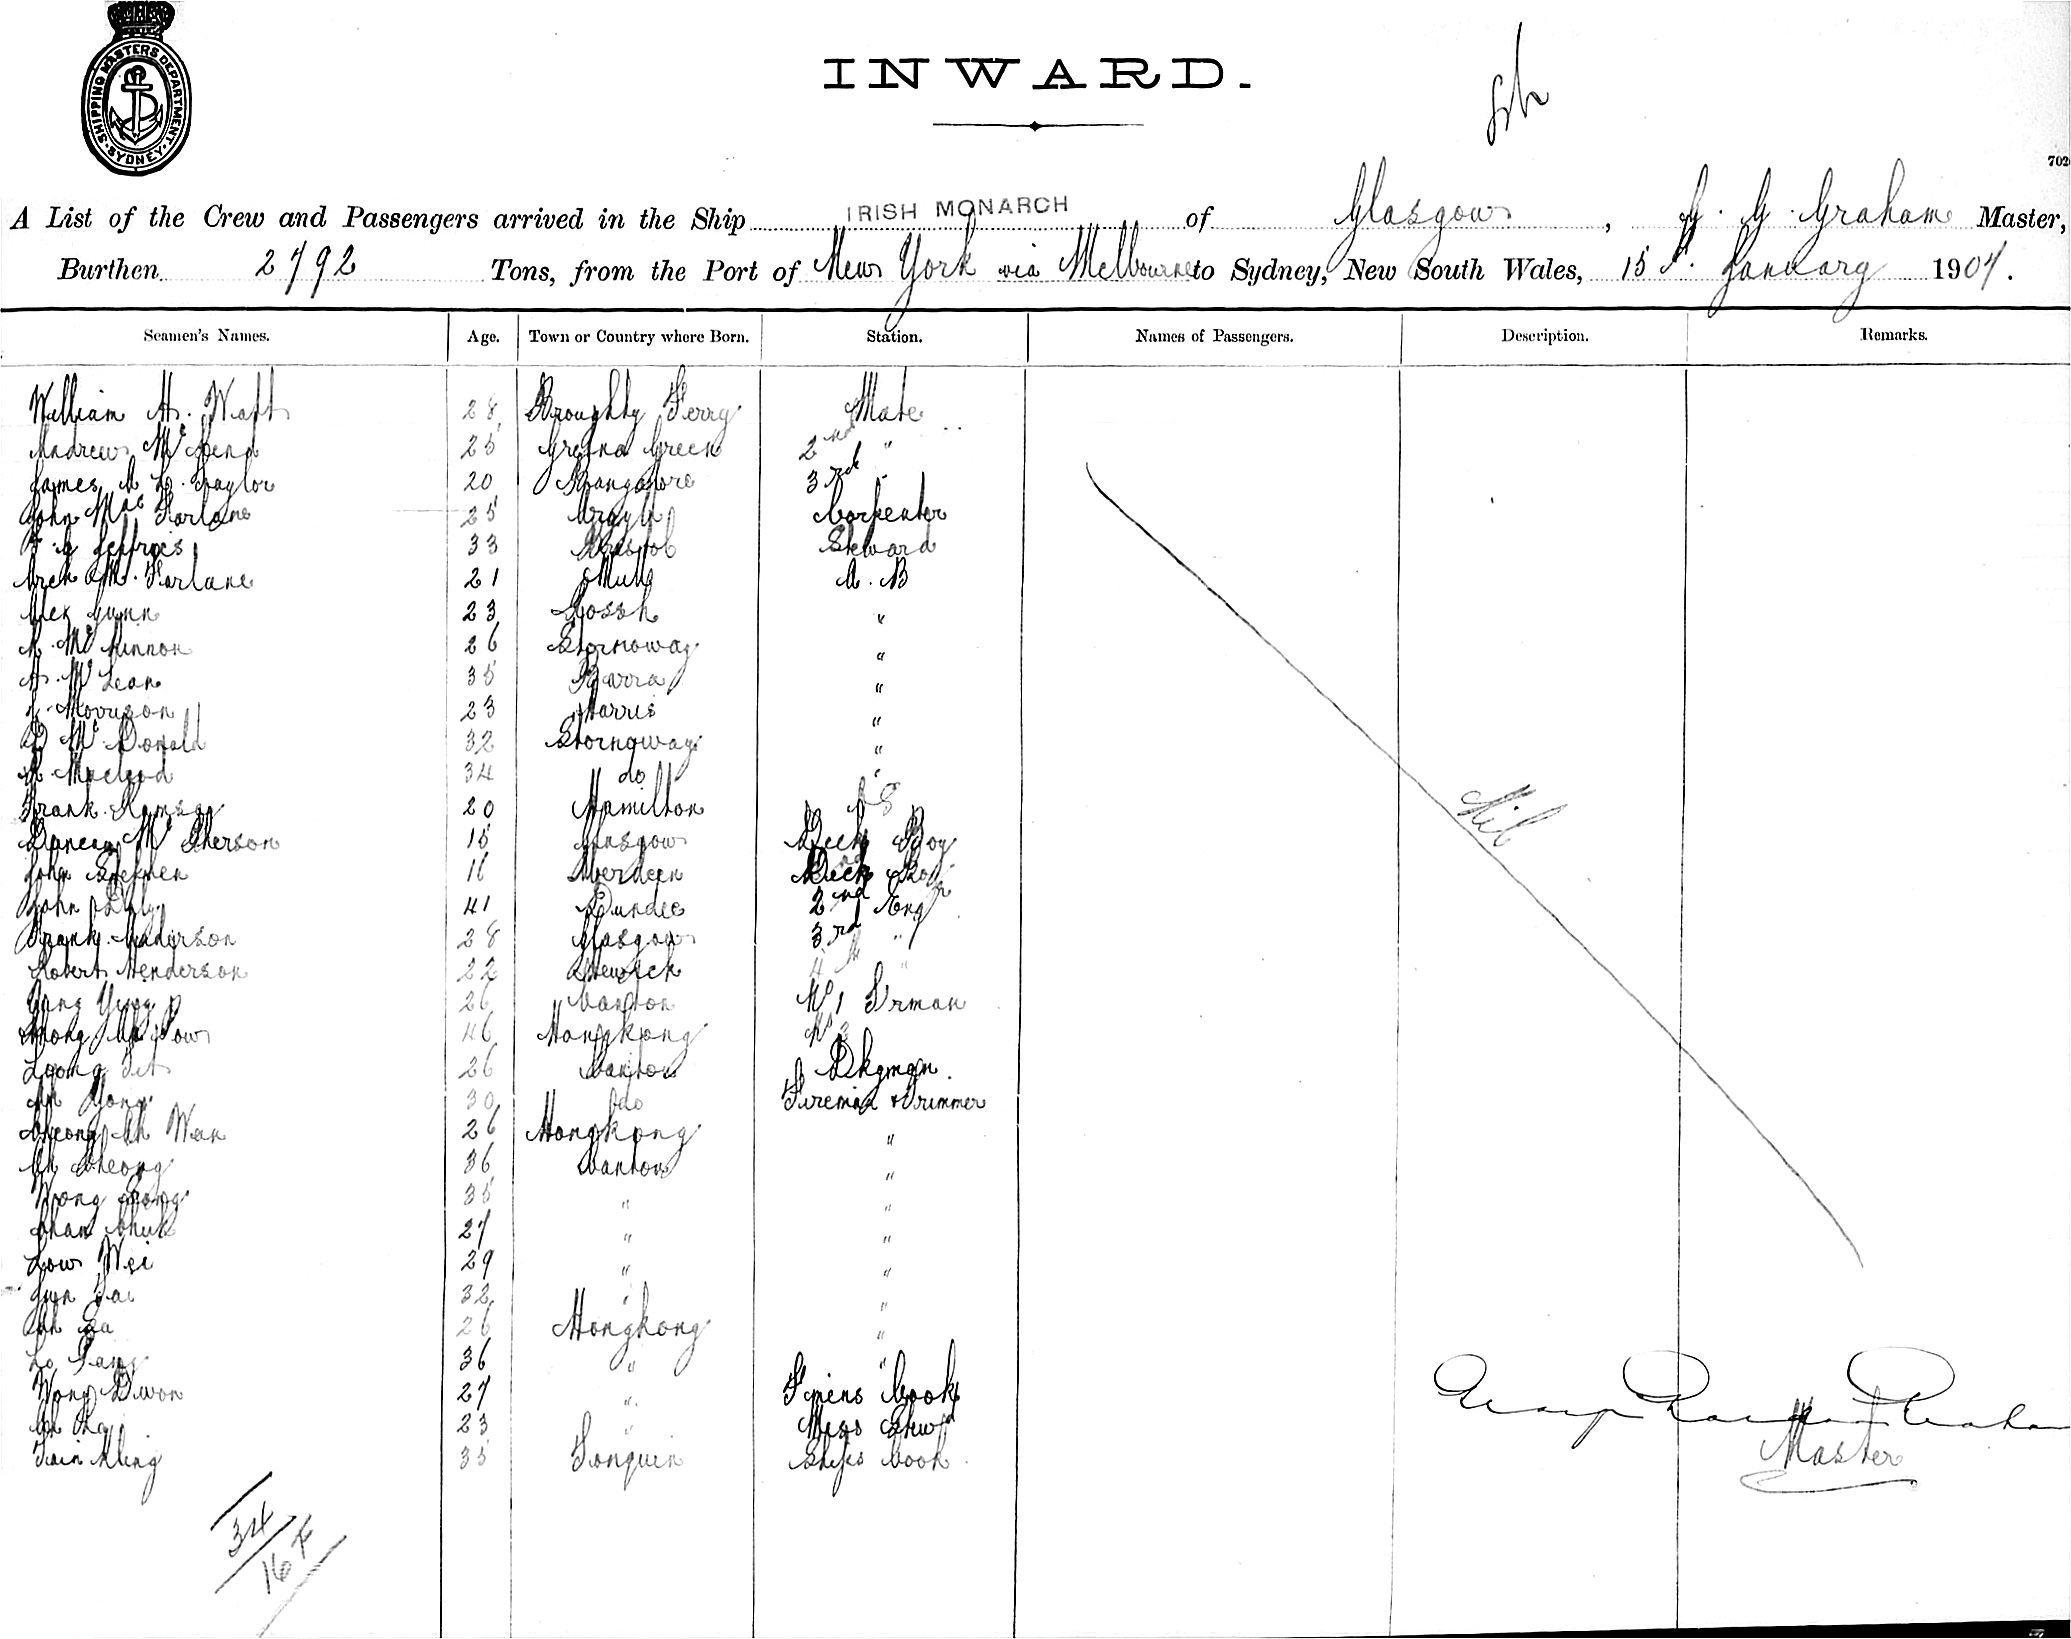 SHIPPING MASTERS DEPARTMENT. SYDNEY.
INWARD.
702
A List of the Crew and Passengers arrived in the Ship IRISH MONARCH of Glasgow, G. G. Graham Master,
Burthen 2792 Tons, from the Port of New York via Melbourne to Sydney, New South Wales, 15th January 1907.
Seamen's Names. Age. Town or Country where Born. Station. Names of Passengers. Description. Remarks.
William H. Watt 28 Broughty Ferry Mate
Andrew 25 Gretna Green 2nd "
James A L. Taylor 20 Bangalore 3rd "
John MacFarlane 25 Argyll Carpenter
F G Jeffries 33 Bristol Steward
Arch Mc.Farlane 21 Mull A. B
Alex Gunn 23 "
A. McKinnon 26 Stornoway "
A. McLean 35 Barra "
Morrison 23 Harris "
D McDonald 32 Stornoway "
Macleod 34 do "
Frank Ramsay 20 Hamilton
Duncan McPherson 15 Glasgow Deck Boy
John Stephen 16 Aberdeen Deck Boy
John 41 Dundee 2nd Eng
Frank Anderson 28 Glasgow 3rd "
Robert Henderson 22 4th "
Yung 26 Canton No 1 Firman
46 Hongkong No 2
Loong 26 Canton Dkyman.
Ah 30 do Fireman & Trimmer
Cheong Ah Wan 26 Hongkong "
Ah Cheong 36 Canton "
Wong 35 " "
Chan Chuk 27 " "
Low Wei 29 " "
Tai 32 " "
Ah 26 Hongkong "
Lo 36 " "
Wong 27 " Firmens Cook
Ah 23 " Mess Stwd
35 Tonquin Ships Cook
Nil
George Graham
Master
34
16 F